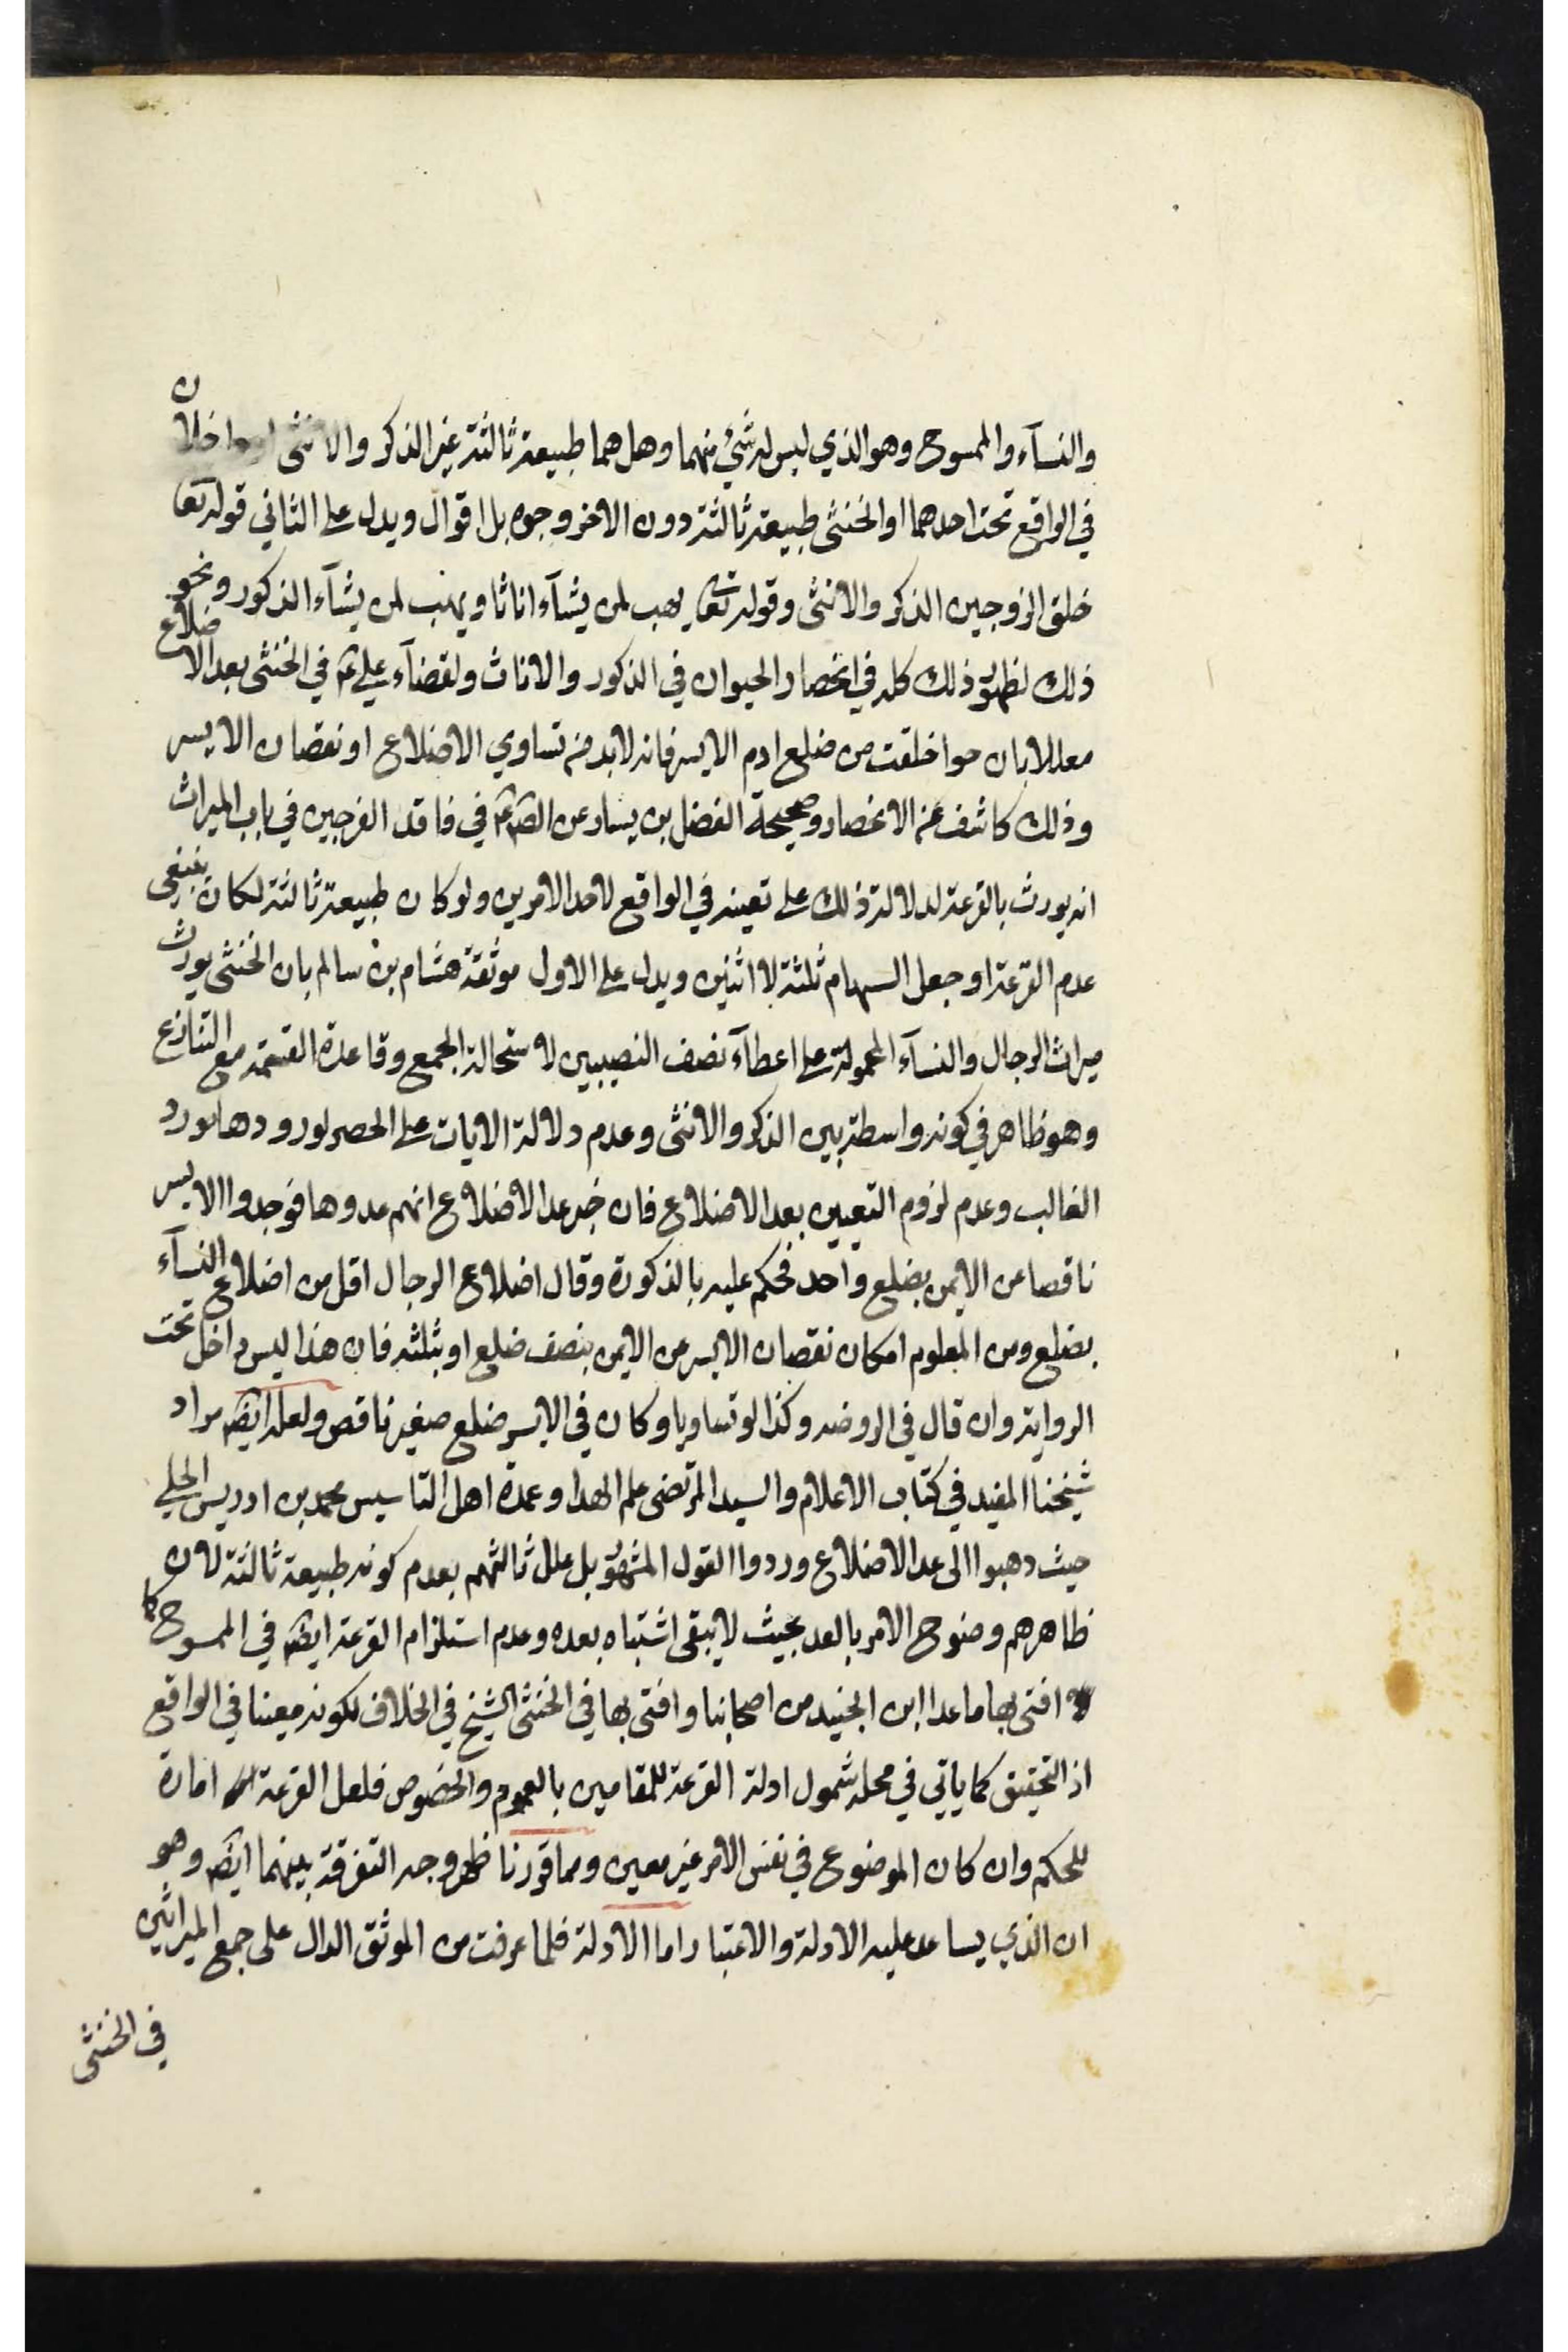 والنسآء والممسوح وهو الذي ليس له شئ منهما وهل هما طبيعة ثالثة غير الذكر والانثى او داخلان
في الواقع تحت احدهما او الخنثى طبيعة ثالثة دون الاخر وجوه بل اقوال ويدل على الثاني قوله تعا
خلق الزوجين الذكر والانثى وقوله تعا يهب لمن يشآء اناثا ويهب لمن يشآء الذكور ونحو
ذلك لظهور ذلك كله في انحصار الحيوان في الذكور والاناث ولقضآء علي ع في الخنثى بعد الاضلاع
معللا بان حوا خلقت من ضلع ادم الايسر فانه لابد من تساوي الاضلاع او نقصان الايسر
وذلك كاشف عن الانحصار وصحيحة الفضل بن يسار عن الص ع في فاقد الفرجين في باب الميراث
انه يورث بالقرعة لدلالة ذلك على تعينه في الواقع لاحد الامرين ولو كان طبيعة ثالثة لكان ينبغي
عدم القرعة او جعل السهام ثلثة لا اثنين ويدل على الاول موثقة هشام بن سالم بان الخنثى يورث
ميراث الرجال والنسآء المحمولة على اعطآء نصف النصيبين لاستحالة الجمع وقاعدة القسمة مع التنازع
وهو ظاهر في كونه واسطة بين الذكر والانثى وعدم دلالة الايات على الحصر لورودها مورد
الغالب وعدم لزوم التعيين بعد الاضلاع فان خبر عد الاضلاع انهم عدوها فوجدوا الايسر
ناقصا عن الايمن بضلع واحد فحكم عليه بالذكورة وقال اضلاع الرجال اقل من اضلاع النسآء
بضلع ومن المعلوم امكان نقصان الايسر من الايمن بنصف ضلع او بثلثه فان هذا ليس داخل تحت
الرواية وان قال في الروضه وكذا لو تساويا وكان في الايسر ضلع صغير ناقص ولعله ايضا مراد
شيخنا المفيد في كتاب الاعلام والسيد المرتضى علم الهدا وعمدة اهل التاسيس محمد بن ادريس الحلي
حيث دهبوا الى عد الاضلاع وردوا القول المشهور بل علل ثالثهم بعدم كونه طبيعة ثالثة لان
ظاهرهم وضوح الامر بالعد بحيث لا يبقى اشتباه بعده وعدم استلزام القرعة ايضا في الممسوح كما
افتى بها ماعدا ابن الجنيد من اصحابنا وافتى بها في الخنثى الشيخ في الخلاف لكونه معينا في الواقع
اذ التحقيق كما ياتي في محله شمول ادلة القرعة للمقامين بالعموم والخصوص فلعل القرعة امارة
للحكم وان كان الموضوع في نفس الامر غير معين ومما قررنا ظهر وجه التفرقة بينهما ايضا وهو
ان الذي يساعد عليه الادلة والاعتبار اما الادلة فلما عرفت من الموثق الدال على جمع الميراثين
في الخنثى